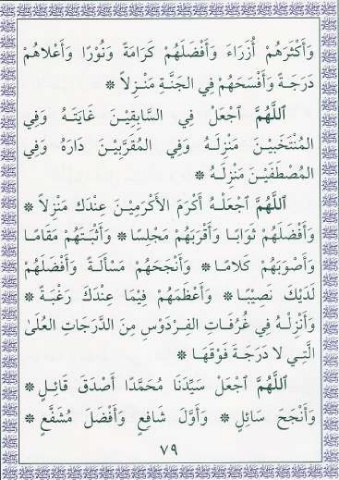 وَأَكْثَرَهُمْ أُزَرَاءَ وَأَفْضَلَهُمْ كَرَامَةً وَنُورًا وَأَعْلَاهُمْ
دَرَجَةً وَأَفْسَحَهُمْ فِي الْجَنَّةِ مَنْزِلاً ❊
اللَّهُمَّ اجْعَلْ فِي السَّابِقِيْنَ غَايَتَهُ وَفِي
الْمُنْتَخَبِيْنَ مَنْزِلَهُ وَفِي الْمُقَرَّبِيْنَ دَارَهُ وَفِي
الْمُصْطَفَيْنَ مَنْزِلَهُ ❊
اللَّهُمَّ اجْعَلْهُ أَكْرَمَ الأَكْرَمِيْنَ عِنْدَكَ مَنْزِلاً ❊
وَأَفْضَلَهُمْ ثَوَابًا وَأَقْرَبَهُمْ مَجْلِسًا ❊ وَأَثْبَتَهُمْ مَقَامًا
وَأَصْوَبَهُمْ كَلَامًا ❊ وَأَنْجَحَهُمْ مَسْأَلَةً وَأَفْضَلَهُمْ
لَدَيْكَ نَصِيْبًا ❊ وَأَعْظَمَهُمْ فِيْمَا عِنْدَكَ رَغْبَةً ❊
وَأَنْزِلْهُ فِي غُرُفَاتِ الْفِرْدَوْسِ مِنَ الدَّرَجَاتِ الْعُلَىٰ
الَّتِي لَا دَرَجَةَ فَوْقَهَا ❊
اللَّهُمَّ اجْعَلْ سَيِّدَنَا مُحَمَّدًا أَصْدَقَ قَائِلٍ ❊
وَأَنْجَحَ سَائِلٍ ❊ وَأَوَّلَ شَافِعٍ وَأَفْضَلَ مُشَفَّعٍ ❊
٧٩